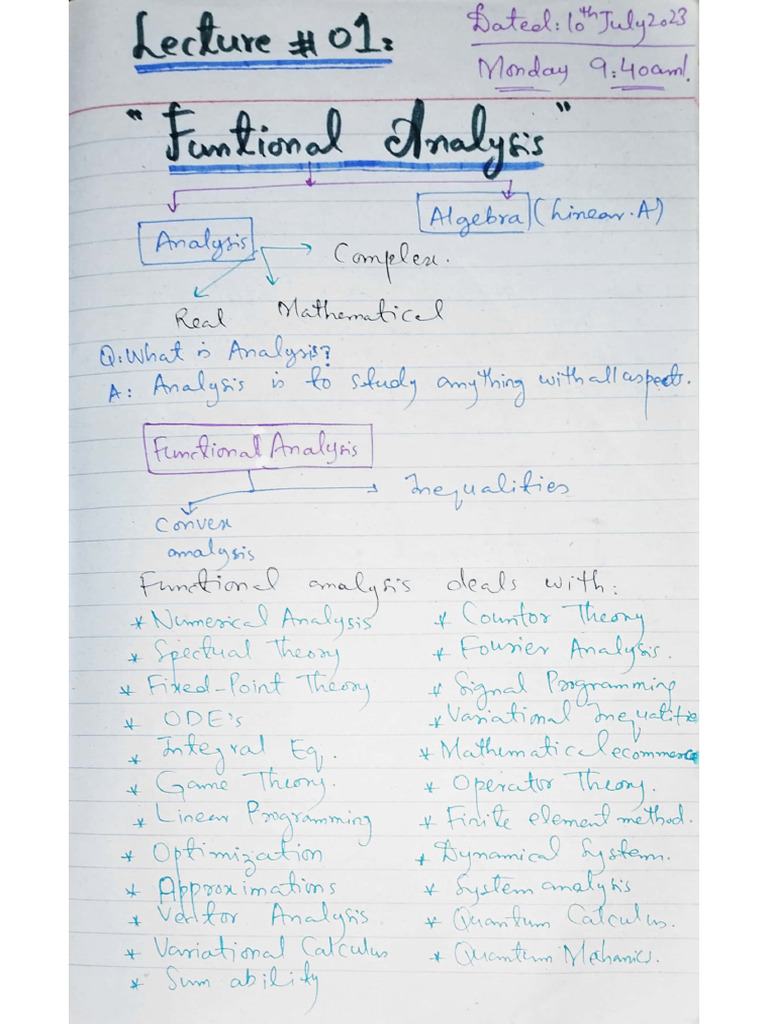 Lecture # 01:
Dated: 10th July 2023
Monday 9:40am!
"Funtional Analysis"
Analysis
Algebra (Linear.A)
Complex.
Real
Mathematical
Q: What is Analysis?
A: Analysis is to study anything with all aspects.
Functional Analysis
Inequalities
Convex
analysis
Functional analysis deals with:
* Numerical Analysis
* Spectual Theory
* Fixed-Point Theory
* ODE's
* Integral Eq.
* Game Theory.
* Linear Programming
* Optimization
* Approximations
* Vector Analysis
* Variational Calculus
* Sum ability
* Countor Theory
* Fourier Analysis.
* Signal Programming
* Variational Inequalitie
* Mathematical ecommerce
* Operator Theory.
* Finite element method.
* Dynamical System.
* System analysis
* Quantum Calculus.
* Quantum Mehanics.